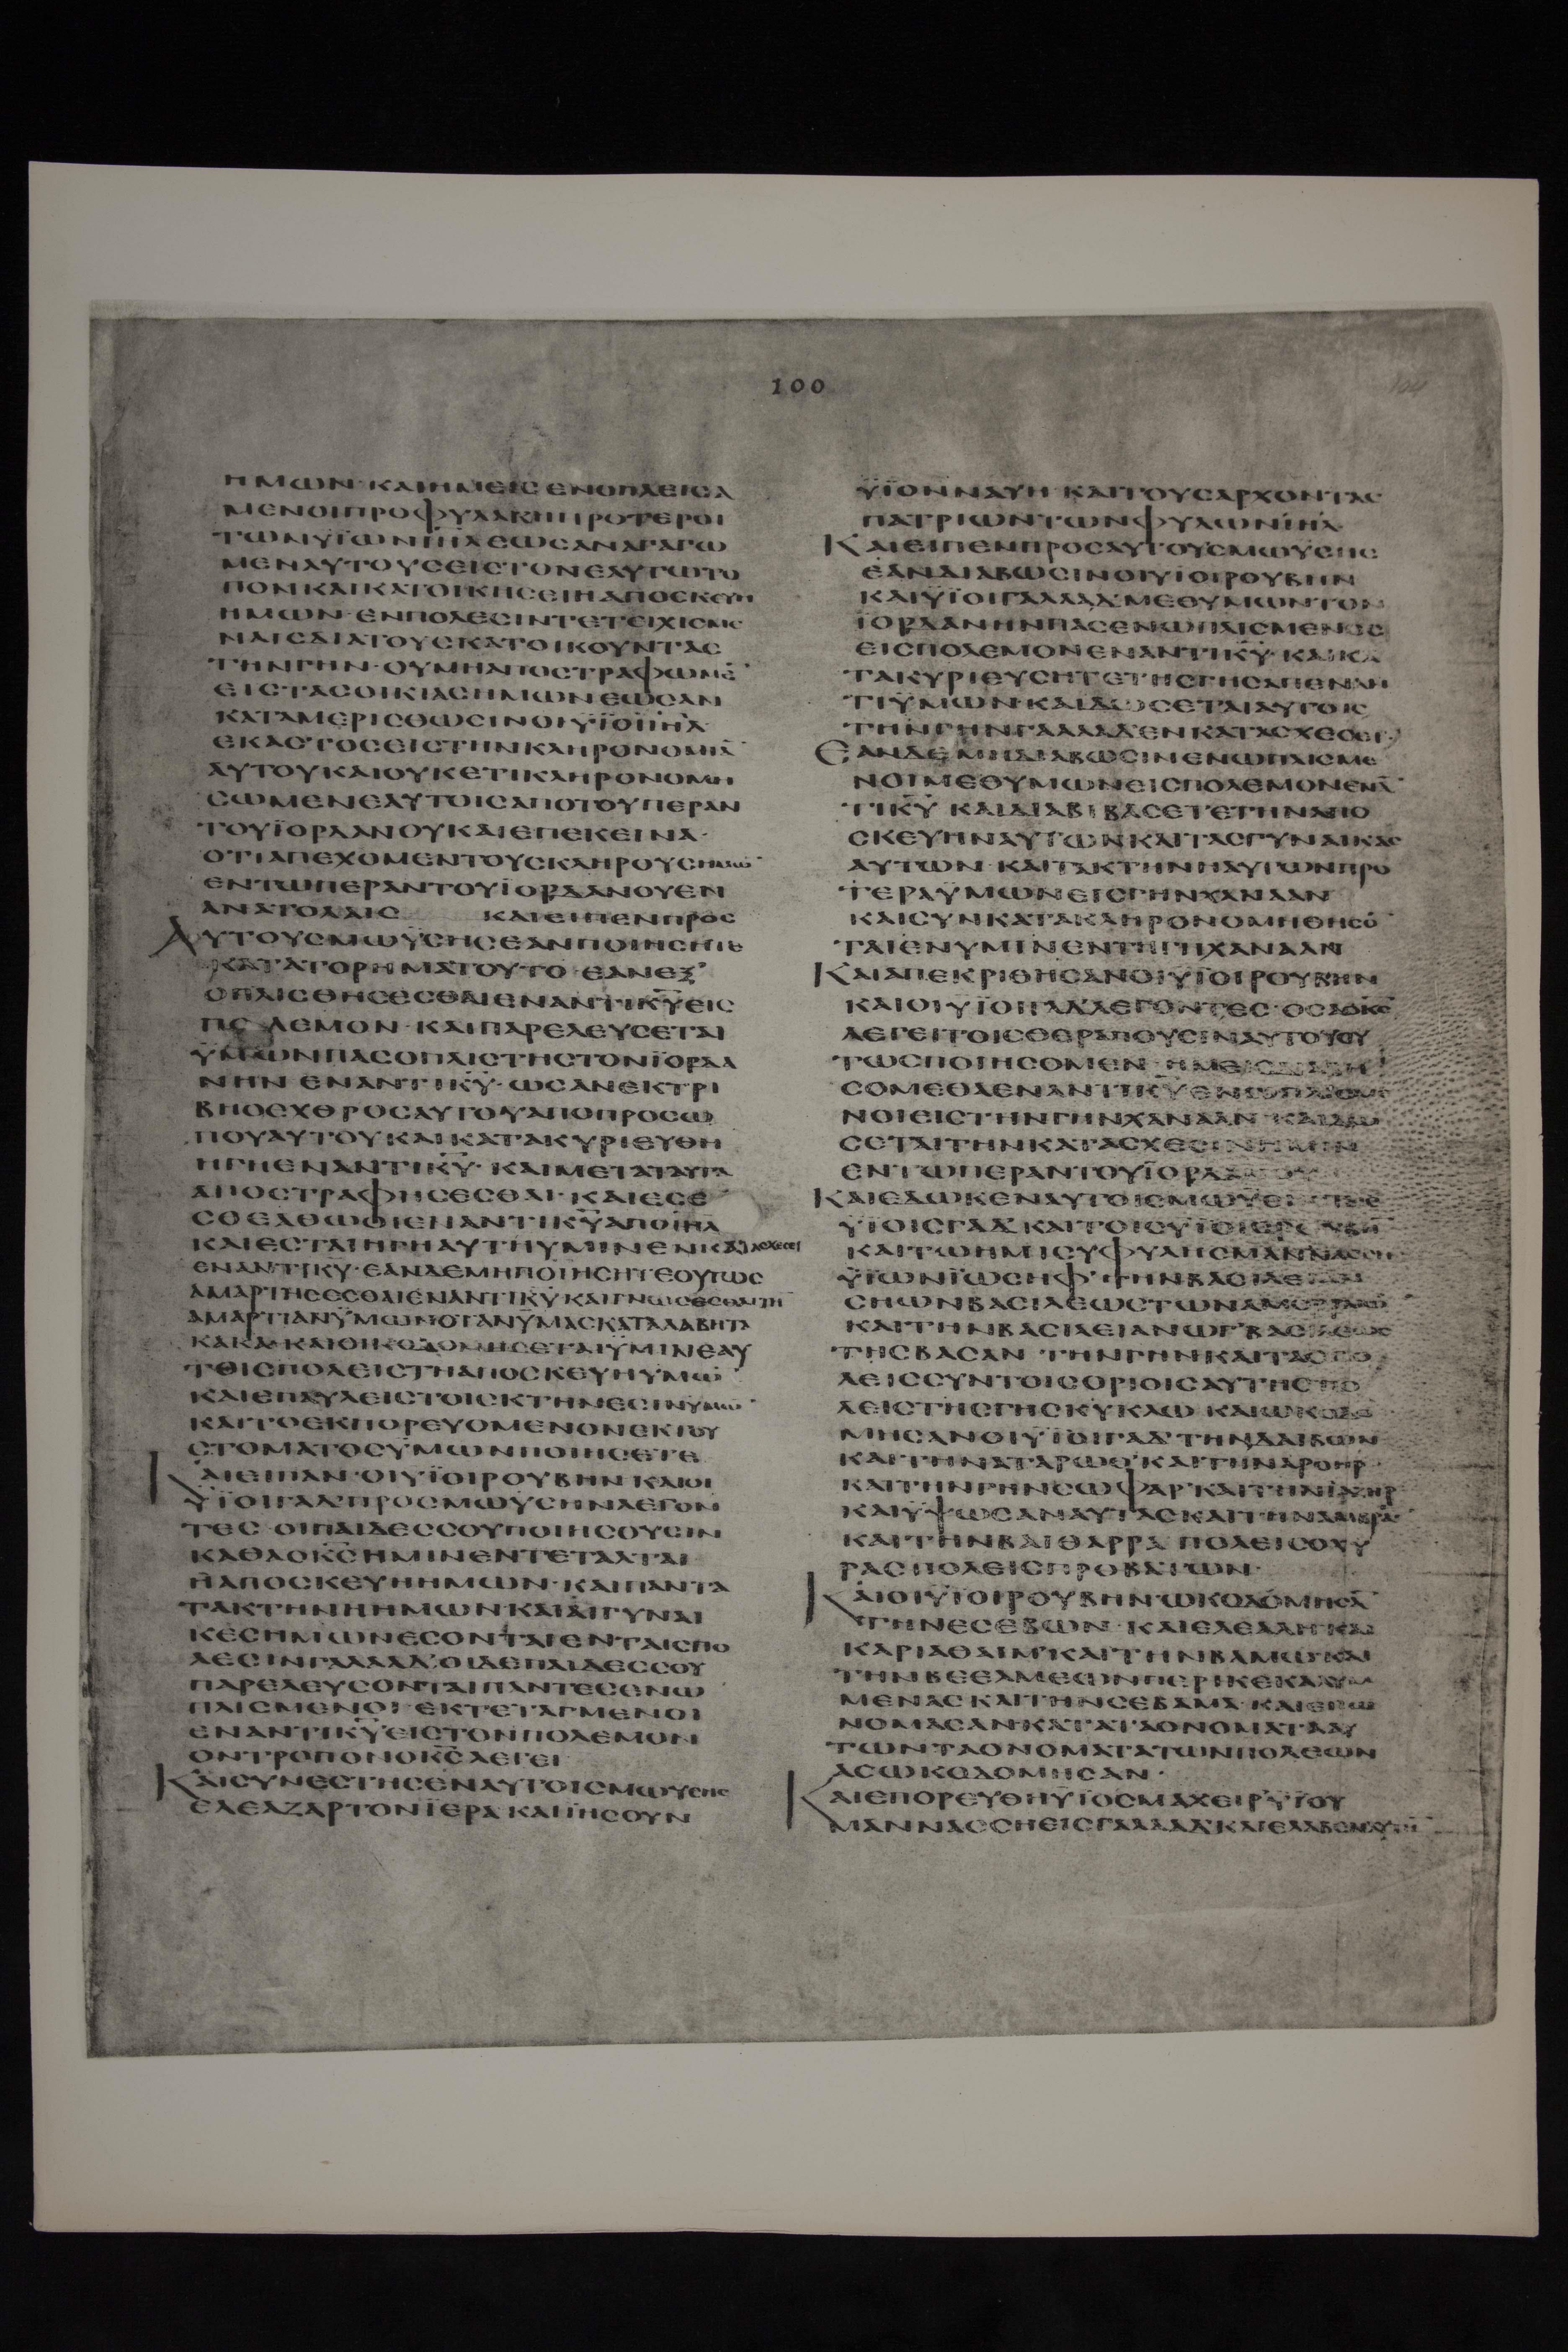 100
104
ΗΜΩΝ·ΚΑΙΗΜΕΙΣΕΝΟΠΛΕΙΣΑ
ΜΕΝΟΙΠΡΟΦΥΛΑΚΗΠΡΟΤΕΡΟΙ
ΤΩΝΥΪΩΝΙΗΛΕΩΣΑΝΑΓΑΓΩ
ΜΕΝΑΥΤΟΥΣΕΙΣΤΟΝΕΑΥΤΩΤΟ
ΠΟΝΚΑΙΚΑΤΟΙΚΗΣΕΙΗΑΠΟΣΚΕΥΗ
ΗΜΩΝ·ΕΝΠΟΛΕΣΙΝΤΕΤΕΙΧΙΣΜΕ
ΝΑΙΣΔΙΑΤΟΥΣΚΑΤΟΙΚΟΥΝΤΑΣ
ΤΗΝΓΗΝ·ΟΥΜΗΑΠΟΣΤΡΑΦΩΜΕ̄
ΕΙΣΤΑΣΟΙΚΙΑΣΗΜΩΝΕΩΣΑΝ
ΚΑΤΑΜΕΡΙΣΘΩΣΙΝΟΙΥΪΟΙΙΗΛ
ΕΚΑΣΤΟΣΕΙΣΤΗΝΚΛΗΡΟΝΟΜΙᾹ
ΑΥΤΟΥΚΑΙΟΥΚΕΤΙΚΛΗΡΟΝΟΜΗ
ΣΩΜΕΝΕΑΥΤΟΙΣΑΠΟΤΟΥΠΕΡΑΝ
ΤΟΥΪΟΡΔΑΝΟΥΚΑΙΕΠΕΚΕΙΝΑ·
ΟΤΙΑΠΕΧΟΜΕΝΤΟΥΣΚΛΗΡΟΥΣΗΜΩ̄
ΕΝΤΩΠΕΡΑΝΤΟΥΪΟΡΔΑΝΟΥΕΝ
ΑΝΑΤΟΛΑΙΣ ΚΑΙΕΙΠΕΝΠΡΟΣ
ΑΥΤΟΥΣΜΩΫΣΗΣΕΑΝΠΟΙΗΣΗΤΕ
ΚΑΤΑΤΟΡΗΜΑΤΟΥΤΟ·ΕΑΝΕΞ
ΟΠΛΙΣΘΗΣΕΣΘΑΙΕΝΑΝΤΙΚῩΕΙΣ
ΠΟΛΕΜΟΝ·ΚΑΙΠΑΡΕΛΕΥΣΕΤΑΙ
ΫΜΩΝΠΑΣΟΠΛΙΣΤΗΣΤΟΝΪΟΡΔΑ
ΝΗΝ·ΕΝΑΝΤΙΚῩ·ΩΣΑΝΕΚΤΡΙ
ΒΗΟΕΧΘΡΟΣΑΥΤΟΥΑΠΟΠΡΟΣΩ
ΠΟΥΑΥΤΟΥΚΑΙΚΑΤΑΚΥΡΙΕΥΘΗ
ΗΓΗΕΝΑΝΤΙΚῩ·ΚΑΙΜΕΤΑΤΑΥΤΑ
ΑΠΟΣΤΡΑΦΗΣΕΣΘΑΙ·ΚΑΙΕΣΕ
ΣΘΕΑΘΩΟΙΕΝΑΝΤΙΚῩΑΠΟΙΗΛ
ΚΑΙΕΣΤΑΙΗΓΗΑΥΤΗΥΜΙΝΕΝΚΑΤΑΣΧΕΣΕΙ
ΕΝΑΝΤΙΚΥ·ΕΑΝΔΕΜΗΠΟΙΗΣΗΤΕΟΥΤΩΣ
ΑΜΑΡΤΗΣΕΣΘΑΙΕΝΑΝΤΙΚῩΚΑΙΓΝΩΣΕΣΘΑΙΤΗ̄
ΑΜΑΡΤΙΑΝΫΜΩΝΟΤΑΝΫΜΑΣΚΑΤΑΛΑΒΗΤΑ
ΚΑΚΑ·ΚΑΙΟΙΚΟΔΟΜΗΣΕΤΑΙΫΜΙΝΕΑΥ
ΤΟΙΣΠΟΛΕΙΣΤΗΑΠΟΣΚΕΥΗΥΜΩ̄
ΚΑΙΕΠΑΥΛΕΙΣΤΟΙΣΚΤΗΝΕΣΙΝΥΜΩ̄
ΚΑΙΤΟΕΚΠΟΡΕΥΟΜΕΝΟΝΕΚΤΟΥ
ΣΤΟΜΑΤΟΣΫΜΩΝΠΟΙΗΣΕΤΕ
ΚΑΙΕΙΠΑΝ·ΟΙΥΪΟΙΡΟΥΒΗΝΚΑΙΟΙ
ΫΪΟΙΓΑΔ'ΠΡΟΣΜΩΫΣΗΝΛΕΓΟΝ
ΤΕΣ·ΟΙΠΑΙΔΕΣΣΟΥΠΟΙΗΣΟΥΣΙΝ
ΚΑΘΑΟΚΣ̄ΗΜΙΝΕΝΤΕΤΑΛΤΑΙ
ΗΑΠΟΣΚΕΥΗΗΜΩΝ·ΚΑΙΠΑΝΤΑ
ΤΑΚΤΗΝΗΗΜΩΝΚΑΙΑΙΓΥΝΑΙ
ΚΕΣΗΜΩΝΕΣΟΝΤΑΙΕΝΤΑΙΣΠΟ
ΛΕΣΙΝΓΑΛΑΑΔ'ΟΙΔΕΠΑΙΔΕΣΣΟΥ
ΠΑΡΕΛΕΥΣΟΝΤΑΙΠΑΝΤΕΣΕΝΩ
ΠΛΙΣΜΕΝΟΙ·ΕΚΤΕΤΑΓΜΕΝΟΙ
ΕΝΑΝΤΙΚῩΕΙΣΤΟΝΠΟΛΕΜΟΝ
ΟΝΤΡΟΠΟΝΟΚΣ̄ΛΕΓΕΙ
ΚΑΙΣΥΝΕΣΤΗΣΕΝΑΥΤΟΙΣΜΩΥΣΗΣ
ΕΛΕΑΖΑΡΤΟΝΪΕΡΑΚΑΙΪΗΣΟΥΝ
ΫΪΟΝΝΑΥΗ·ΚΑΙΤΟΥΣΑΡΧΟΝΤΑΣ
ΠΑΤΡΙΩΝΤΩΝΦΥΛΩΝΙΗΛ
ΚΑΙΕΙΠΕΝΠΡΟΣΑΥΤΟΥΣΜΩΫΣΗΣ
ΕΑΝΔΙΑΒΩΣΙΝΟΙΥΪΟΙΡΟΥΒΗΝ
ΚΑΙΫΪΟΙΓΑΛΑΑΔ'ΜΕΘΥΜΩΝΤΟΝ
ΪΟΡΔΑΝΗΝΠΑΣΕΝΩΠΛΙΣΜΕΝΟΣ
ΕΙΣΠΟΛΕΜΟΝΕΝΑΝΤΙΚῩ·ΚΑΙΚΑ
ΤΑΚΥΡΙΕΥΣΗΤΕΤΗΣΓΗΣΑΠΕΝΑΝ
ΤΙΫΜΩΝ·ΚΑΙΔΩΣΕΤΑΙΑΥΤΟΙΣ
ΤΗΝΓΗΝΓΑΛΑΑΔ'ΕΝΚΑΤΑΣΧΕΣΕΙ
ΕΑΝΔΕΜΗΔΙΑΒΩΣΙΝΕΝΩΠΛΙΣΜΕ
ΝΟΙΜΕΘΥΜΩΝΕΙΣΠΟΛΕΜΟΝΕΝᾹ
ΤΙΚῩ ΚΑΙΔΙΑΒΙΒΑΣΕΤΕΤΗΝΑΠΟ
ΣΚΕΥΗΝΑΥΤΩΝΚΑΙΤΑΣΓΥΝΑΙΚΑΣ
ΑΥΤΩΝ·ΚΑΙΤΑΚΤΗΝΗΑΥΤΩΝΠΡΟ
ΤΕΡΑΫΜΩΝΕΙΣΓΗΝΧΑΝΑΑΝ
ΚΑΙΣΥΝΚΑΤΑΚΛΗΡΟΝΟΜΗΘΗΣΟ̄
ΤΑΙΕΝΥΜΙΝΕΝΤΗΓΗΧΑΝΑΑΝ
ΚΑΙΑΠΕΚΡΙΘΗΣΑΝΟΙΥΪΟΙΡΟΥΒΗΝ
ΚΑΙΟΙΥΪΟΙΓΑΔ'ΛΕΓΟΝΤΕΣ·ΟΣΑΟΚΣ̄
ΛΕΓΕΙΤΟΙΣΘΕΡΑΠΟΥΣΙΝΑΥΤΟΥΟΥ
ΤΩΣΠΟΙΗΣΟΜΕΝ·ΗΜΕΙΣΔΙΑΒΗ
ΣΟΜΕΘΑΕΝΑΝΤΙΚῩΕΝΩΠΛΙΣΜΕ
ΝΟΙΕΙΣΤΗΝΓΗΝΧΑΝΑΑΝ·ΚΑΙΔΩ
ΣΕΤΑΙΤΗΝΚΑΤΑΣΧΕΣΙΝΗΜΙΝ
ΕΝΤΩΠΕΡΑΝΤΟΥΪΟΡΔΑΝΟΥ
ΚΑΙΕΔΩΚΕΝΑΥΤΟΙΣΜΩΫΣΗΣΤΟΙΣ
ΥΪΟΙΣΓΑΔ'ΚΑΙΤΟΙΣΥΪΟΙΣΡΟΥΒΗΝ
ΚΑΙΤΩΗΜΙΣΥΦΥΛΗΣΜΑΝΝΑΣΣΗ
ΫΪΩΝΪΩΣΗΦ'ΤΗΝΒΑΣΙΛΕΙΑΝ
ΣΗΩΝΒΑΣΙΛΕΩΣΤΩΝΑΜΟΡΡΑΙΩ̄
ΚΑΙΤΗΝΒΑΣΙΛΕΙΑΝΩΓ'ΒΑΣΙΛΕΩΣ
ΤΗΣΒΑΣΑΝ·ΤΗΝΓΗΝΚΑΙΤΑΣΠΟ
ΛΕΙΣΣΥΝΤΟΙΣΟΡΙΟΙΣΑΥΤΗΣΠΟ
ΛΕΙΣΤΗΣΓΗΣΚΥΚΛΩ·ΚΑΙΩΚΟΔΟ
ΜΗΣΑΝΟΙΥΪΟΙΓΑΔ'ΤΗΝΔΑΙΒΩΝ
ΚΑΙΤΗΝΑΤΑΡΩΘ'ΚΑΙΤΗΝΑΡΟΗΡ
ΚΑΙΤΗΝΓΗΝΣΩΦΑΡ'ΚΑΙΤΗΝΙΑΖΗΡ
ΚΑΙΫΨΩΣΑΝΑΥΤΑΣΚΑΙΤΗΝΑΜΒΡᾹ
ΚΑΙΤΗΝΒΑΙΘΑΡΡΑ·ΠΟΛΕΙΣΟΧΥ
ΡΑΣΠΟΛΕΙΣΠΡΟΒΑΤΩΝ·
ΚΑΙΟΙΥΪΟΙΡΟΥΒΗΝΩΚΟΔΟΜΗΣᾹ
ΤΗΝΕΣΕΒΩΝ·ΚΑΙΕΛΕΑΛΗΚΑΙ
ΚΑΡΙΑΘΑΙΜ'ΚΑΙΤΗΝΒΑΜΩΚΑΙ
ΤΗΝΒΕΕΛΜΕΩΝΠΕΡΙΚΕΚΛΥΜ
ΜΕΝΑΣΚΑΙΤΗΝΣΕΒΑΜΑ·ΚΑΙΕΠΩ
ΝΟΜΑΣΑΝΚΑΤΑΤΑΟΝΟΜΑΤΑΑΥ
ΤΩΝΤΑΟΝΟΜΑΤΑΤΩΝΠΟΛΕΩΝ
ΑΣΩΚΟΔΟΜΗΣΑΝ·
ΚΑΙΕΠΟΡΕΥΘΗΫΪΟΣΜΑΧΕΙΡ'ΫΪΟΥ
ΜΑΝΝΑΣΣΗΕΙΣΓΑΛΑΑΔ'ΚΑΙΕΛΑΒΕΝΑΥΤΗ̄